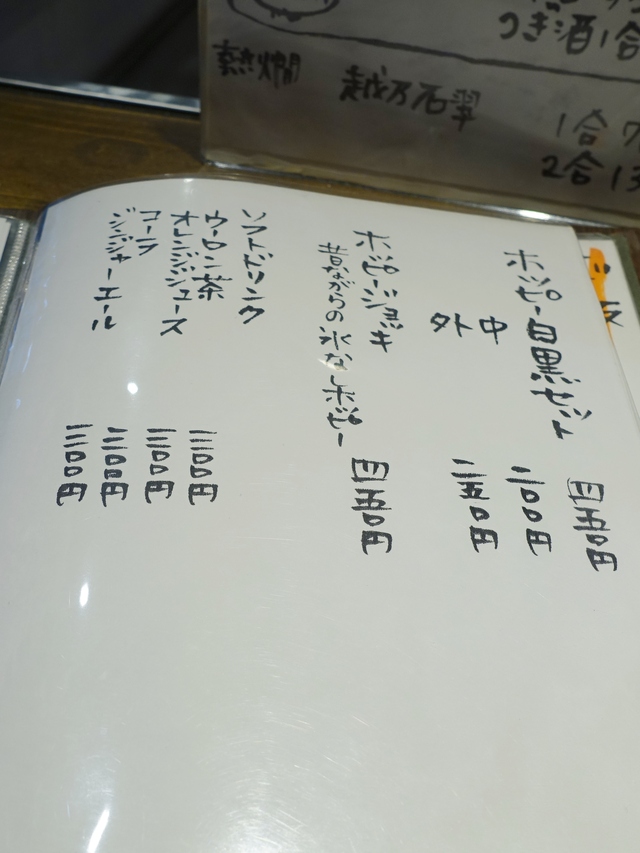 つぎ酒1合
熱燗 越乃石翠
1合
2合
ホッピー白黒セット 四五〇円
中 二〇〇円
外 二五〇円
ホッピージョッキ 四五〇円
昔ながらの氷なしホッピー
ソフトドリンク
ウーロン茶 三〇〇円
オレンジジュース 三〇〇円
コーラ 三〇〇円
ジンジャーエール 三〇〇円